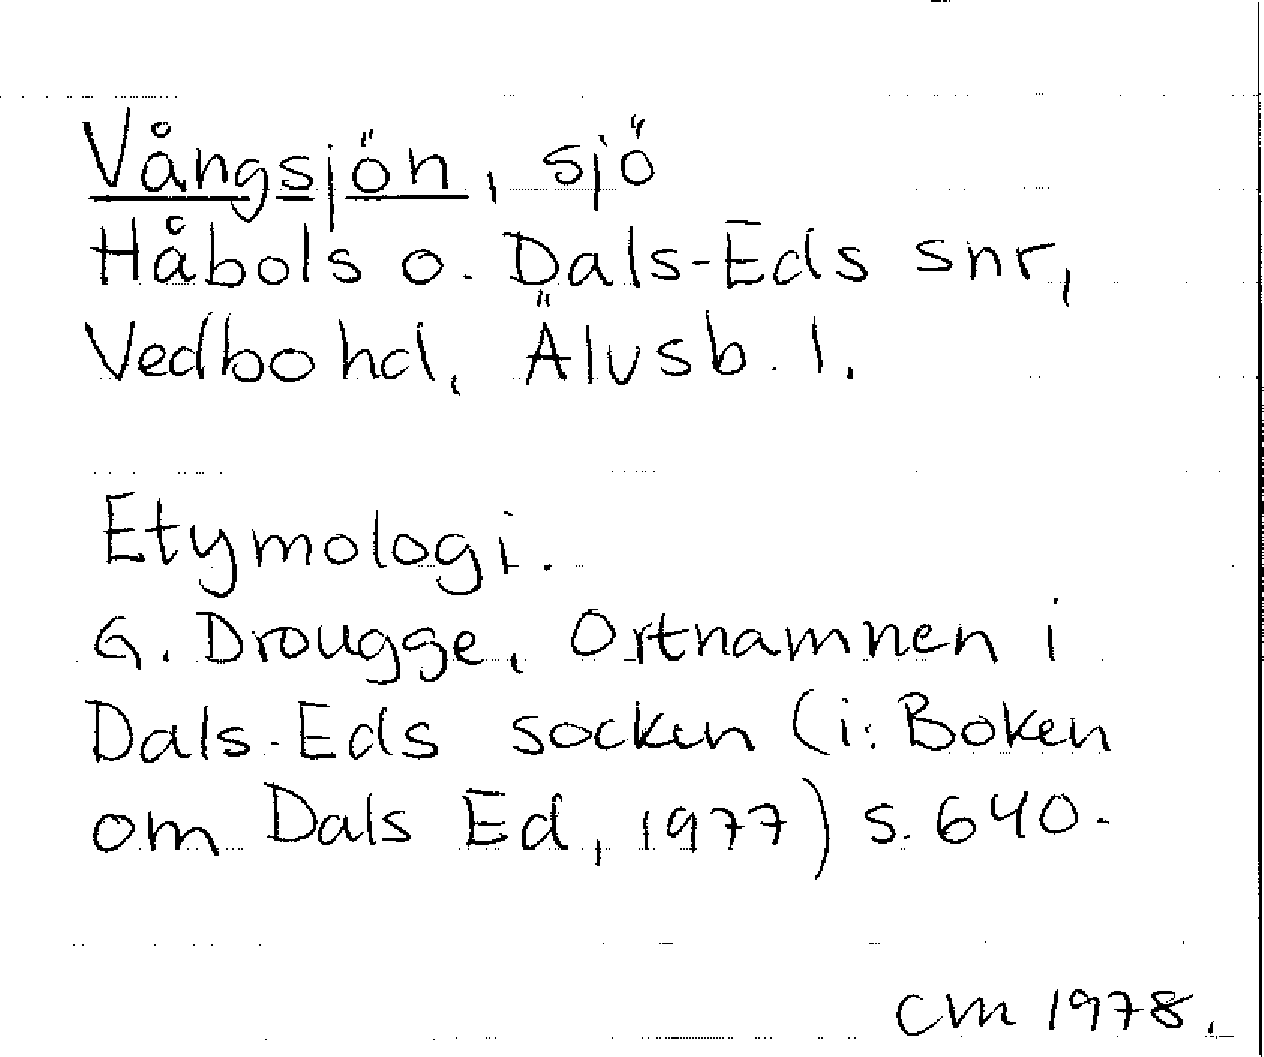 Vångsjön, sjö
Håbols o. Dals-Eds snr,
Vedbo hd, Älvsb. l.
Etymologi.
G. Drougge, Ortnamnen i
Dals-Eds socken (i: Boken
om Dals Ed, 1977) s. 640.
CM 1978.